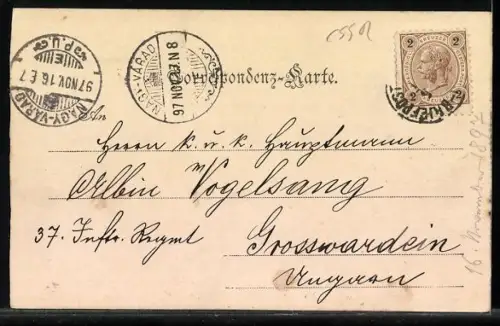 C55R
Correspondenz-Karte.
NAGY-VÁRAD
97 NOV. 16. E. 7
P.U.
NAGY-VÁRAD
97 NOV.
2 2
An
Herrn k. u. k. Hauptmann
Albin v Vogelsang
37. Inftr. Regmt Grosswardein
Ungarn
16. November 1897